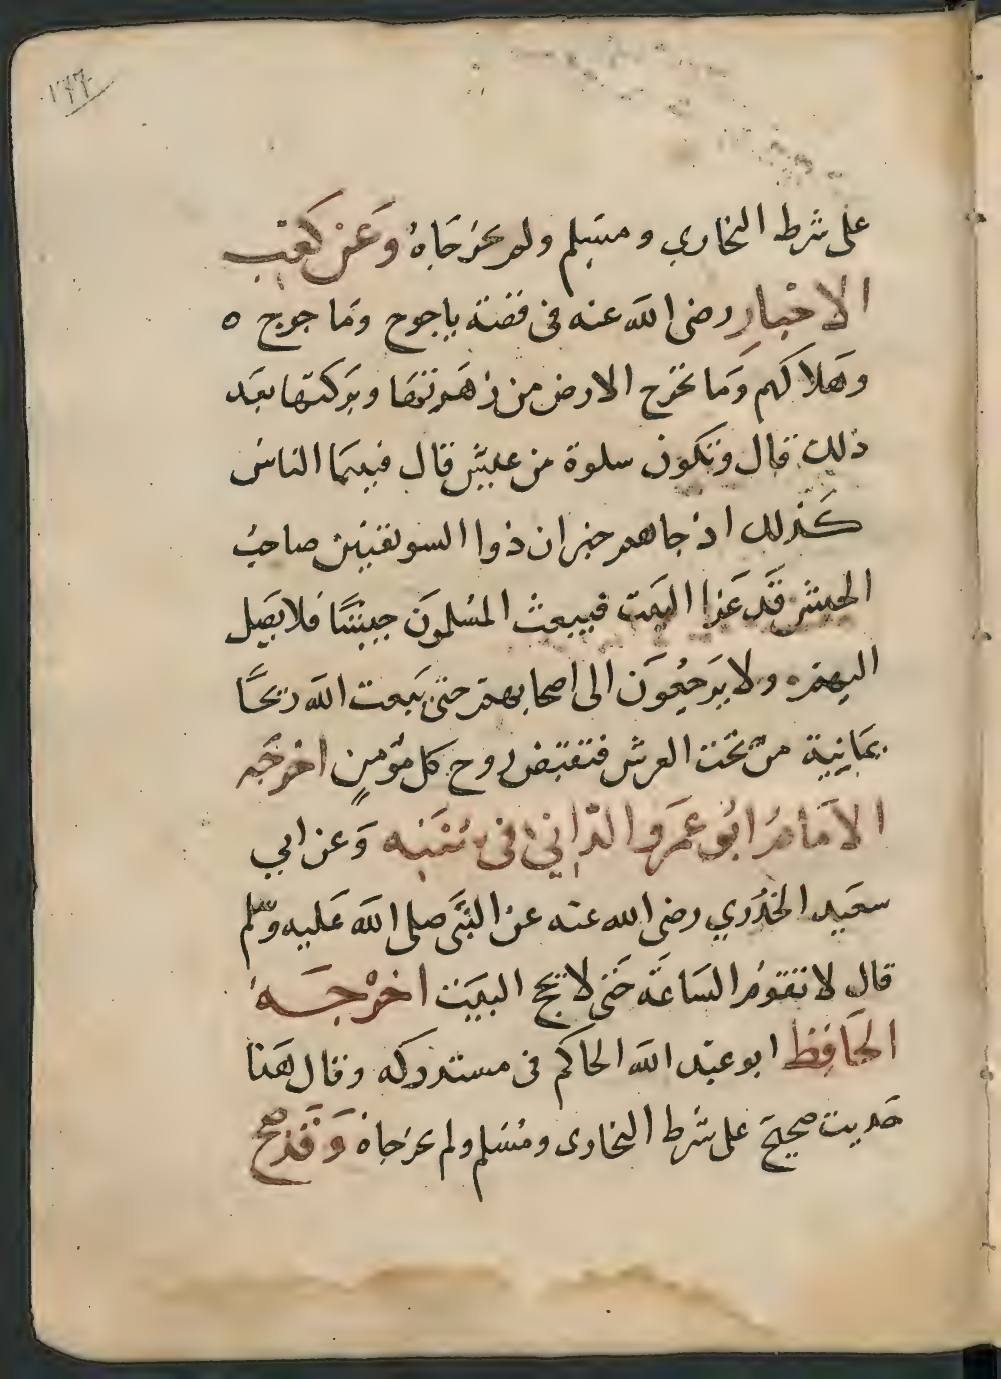 على شرط البخاري ومسلم ولم يخرجاه وَعَن كَعْب
الاحبار رضى الله عنه فى قصة ياجوج وما جوج ه
وهلاكهم وَما تخرج الارض من زهرتها وبركتها بعد
ذلك قال وتكون سلوة من عيش قال فبينما الناس
كذلك اذ جاهم خبر ان ذوا السويقتين صاحب
الحبش قَد غزا البيت فيبعث المسلمونَ جيشًا فلا يَصِل
اليهم ولا يَرجعُونَ الى اصحابهم حتى يَبعث الله ريحًا
يمانية من تحت العرش فتقبض روح كل مؤمنٍ اخرجَه
الامام ابُو عَمرو الدّاني فى سُننه وَعن ابي
سعيد الخُدري رضى الله عنه عن النبى صلى الله عَليه وسلم
قال لا تقومُ السَاعَة حَتى لا يحج البَيت اخرْجَهُ
الحَافِظ ابو عبد الله الحاكم فى مستدركه وقال هَذا
حَديث صحيحَ على شرط البخاوى ومُسْلم ولم يخرجاه وَقَد صح